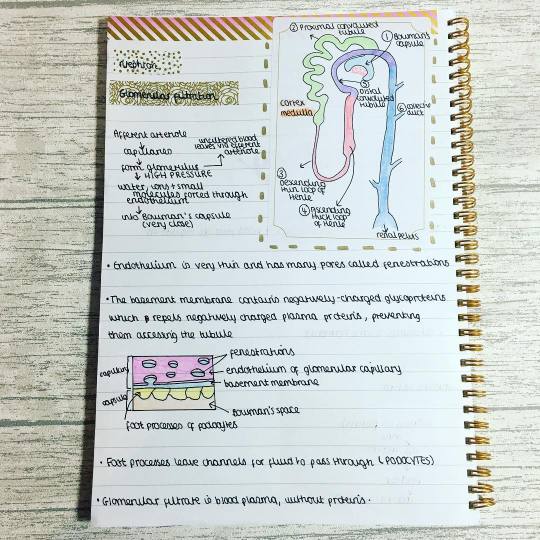 Nephron
Glomerular filtration
Afferent arteriole
capillaries
form glomerulus
unfiltered blood
leaves via efferent
arteriole
HIGH PRESSURE
water, ions + small
molecules forced through
endothelium
into Bowman's capsule
(very close)
② Proximal convoluted
tubule
① Bowman's
capsule
⑤
Distal
convoluted
tubule
cortex
medulla
⑥ collecting
duct
③
Descending
thin loop of
Henle
④ Ascending
thick loop
of Henle
renal pelvis
• Endothelium is very thin and has many pores called fenestrations
• The basement membrane contains negatively-charged glycoproteins
which repels negatively charged plasma proteins, preventing
them accessing the tubule
capillary
fenestrations
endothelium of glomerular capillary
basement membrane
capsule
Bowman's space
foot processes of podocytes
• Foot processes leave channels for fluid to pass through (PODOCYTES)
• Glomerular filtrate is blood plasma, without proteins.